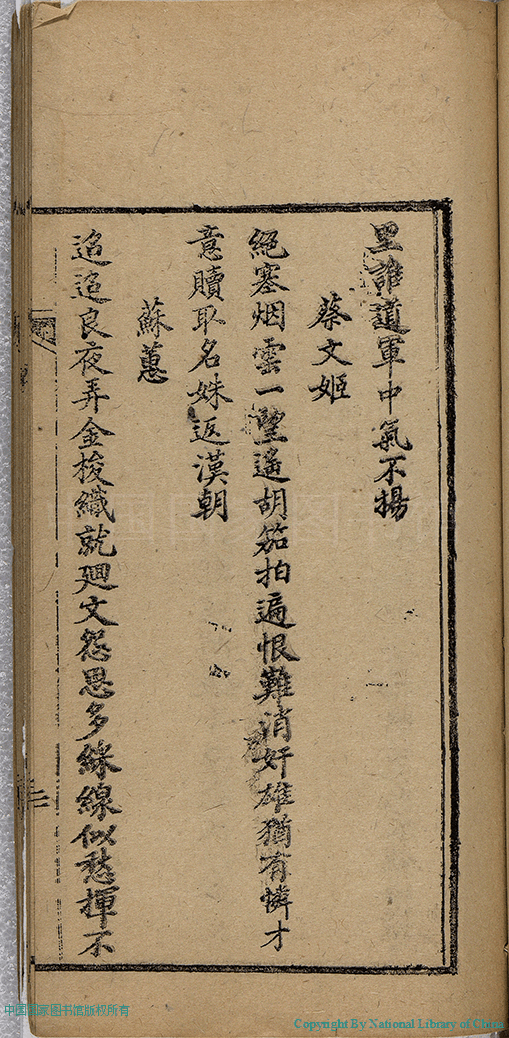 里誰道軍中氣不揚
蔡文姬
絕塞烟雲一望遙胡笳拍遍恨難消奸雄猶有憐才
意贖取名姝返漢朝
蘇蕙
迢迢良夜弄金梭織就廻文怨思多綵線似愁揮不
中国国家图书馆版权所有
Copyright By National Library of China